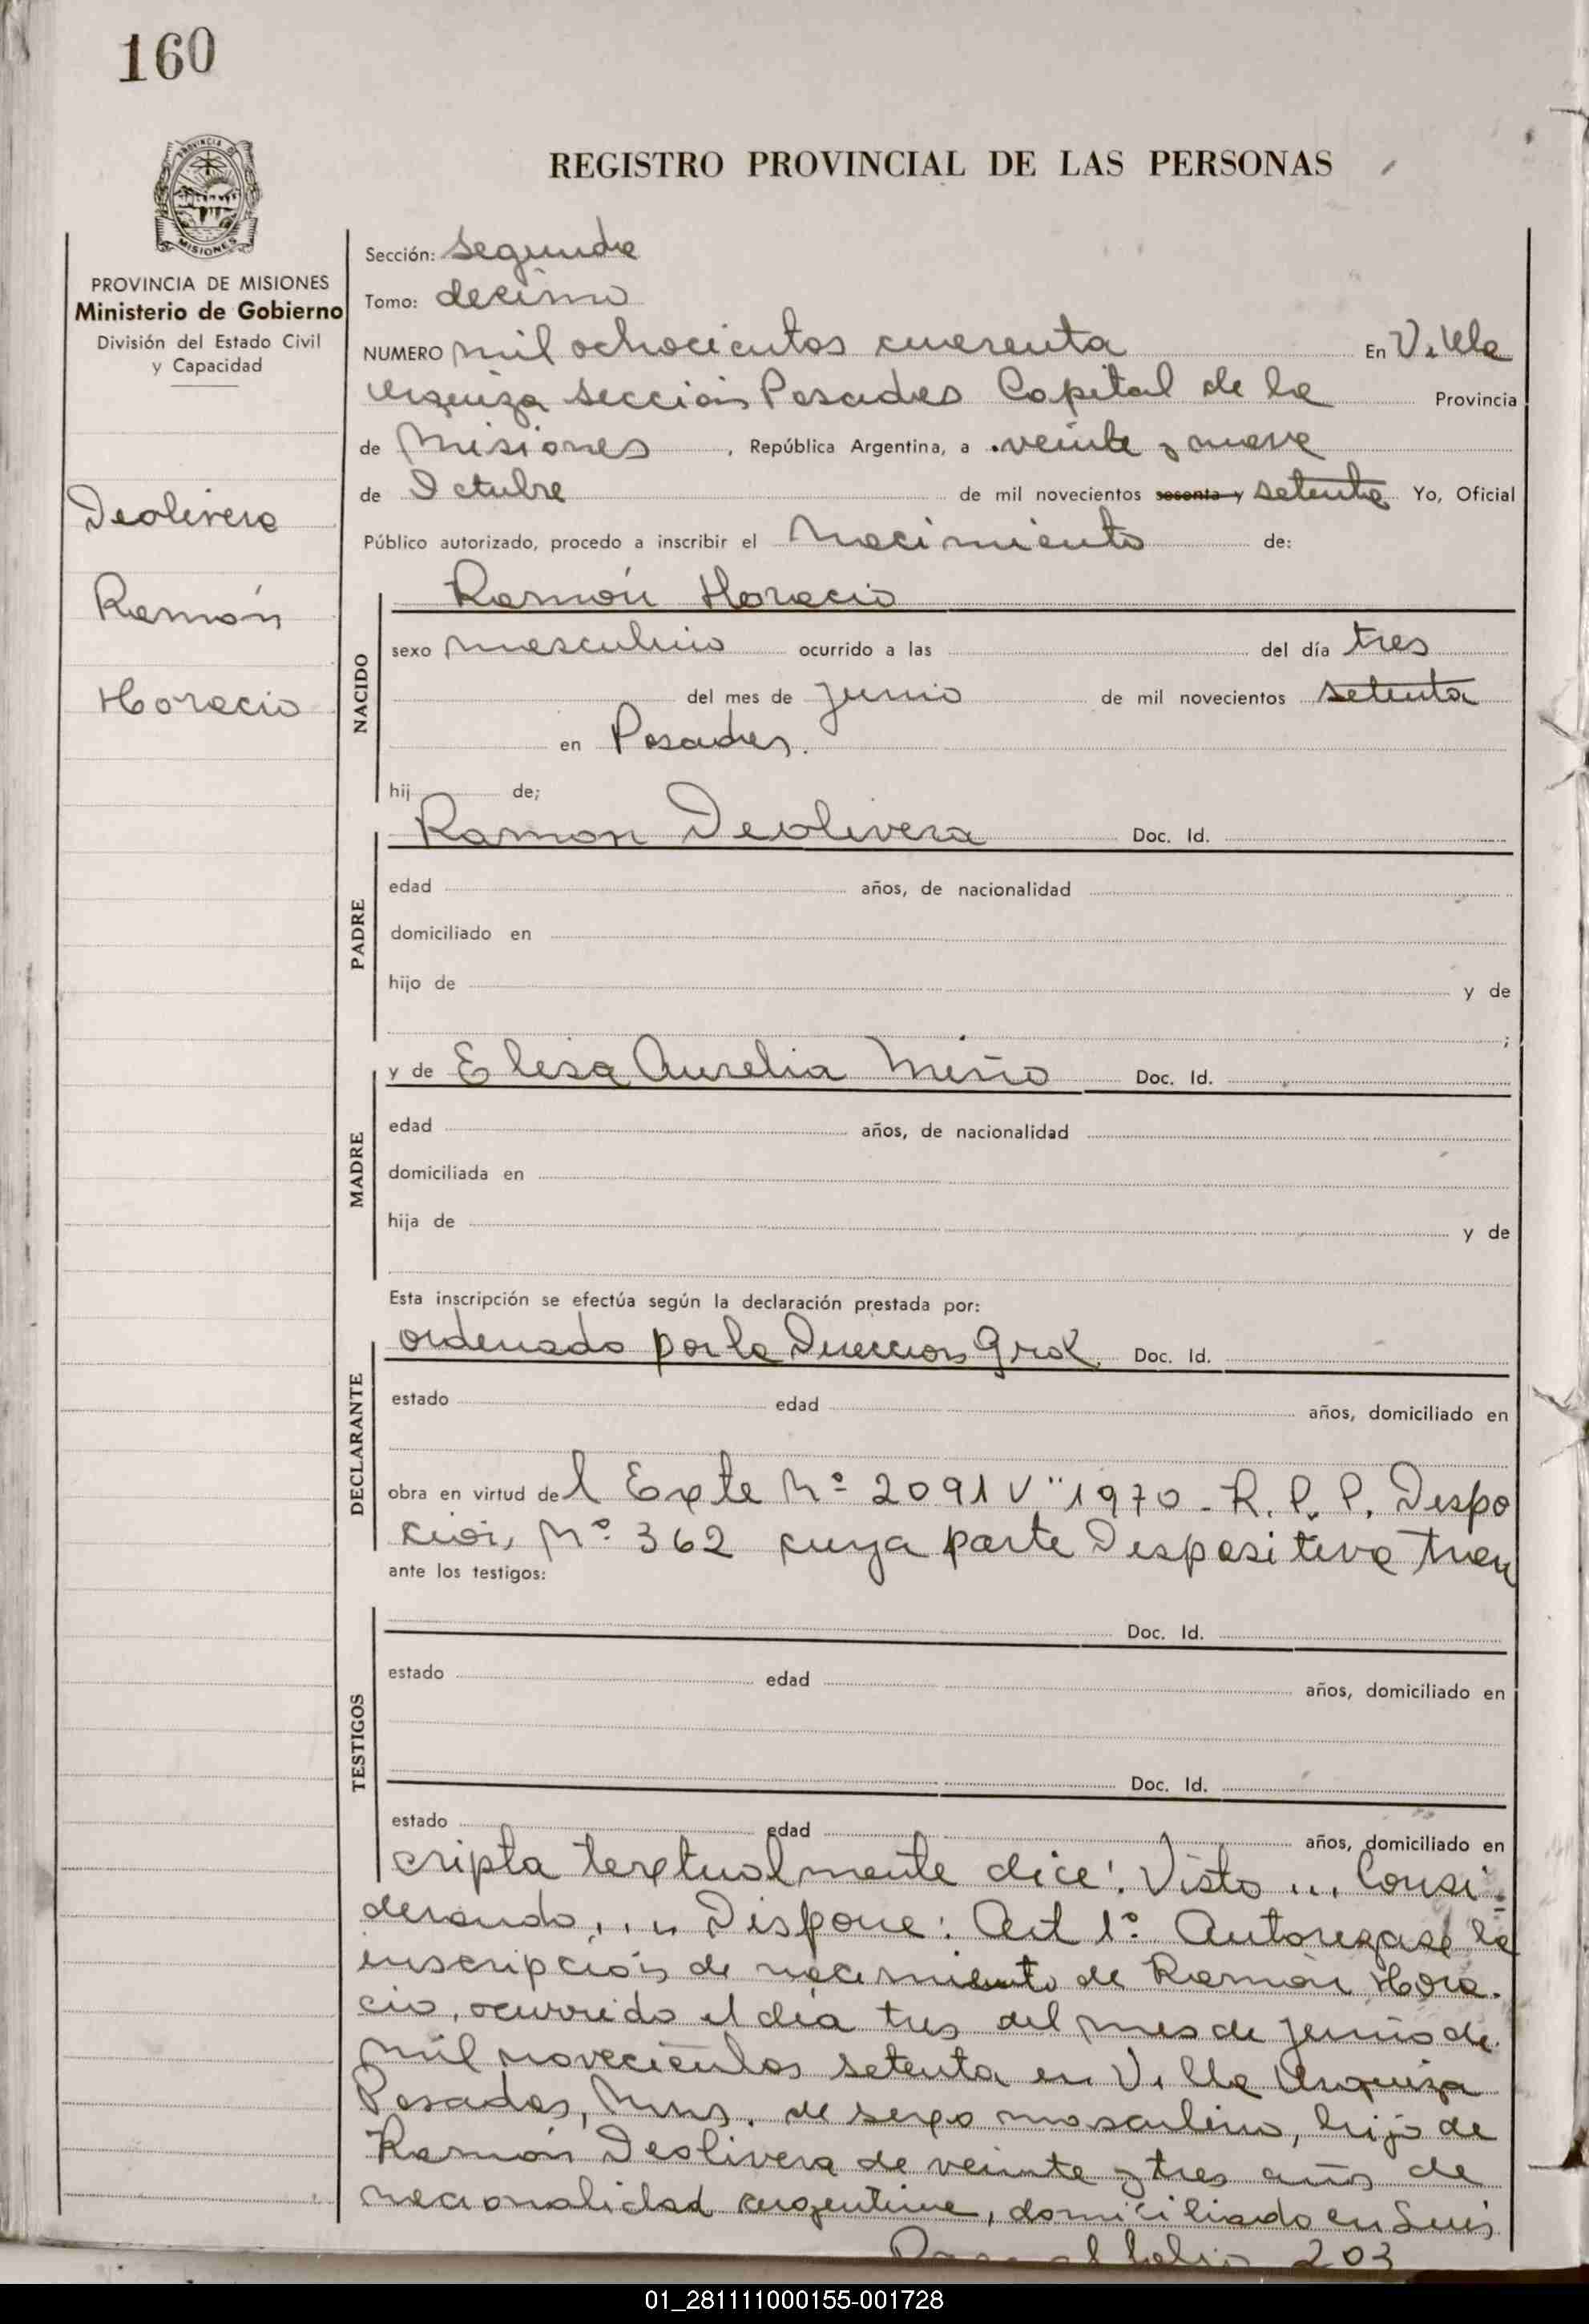 160
PROVINCIA DE
MISIONES
REGISTRO PROVINCIAL DE LAS PERSONAS
PROVINCIA DE MISIONES
Ministerio de Gobierno
División del Estado Civil
y Capacidad
Deolivera
Ramón
Horacio
Sección: segunda
Tomo: decimo
NUMERO mil ochocientos cuarenta En Villa
Urquiza sección Posadas Capital de la Provincia
de Misiones, República Argentina, a veinte y nueve
de Octubre de mil novecientos sesenta y setenta Yo, Oficial
Público autorizado, procedo a inscribir el Nacimiento de:
NACIDO
Ramón Horacio
sexo masculino ocurrido a las del día tres
del mes de Junio de mil novecientos setenta
en Posadas.
hij de;
PADRE
Ramon Deolivera Doc. Id.
edad años, de nacionalidad
domiciliado en
hijo de y de
;
MADRE
y de Elisa Aurelia Miño Doc. Id.
edad años, de nacionalidad
domiciliada en
hija de y de
Esta inscripción se efectúa según la declaración prestada por:
DECLARANTE
ordenado por la Direccion Gral. Doc. Id.
estado edad años, domiciliado en
obra en virtud del Expte Nº 2091 V" 1970 - R. P. P. Dispo
cion, Nº 362 cuya parte Dispositiva tran
ante los testigos:
TESTIGOS
Doc. Id.
estado edad años, domiciliado en
Doc. Id.
estado edad años, domiciliado en
cripta textualmente dice: Visto ... Consi-
derando, ... Dispone: Art 1º Autorizase la
inscripción de nacimiento de Ramón Hora-
cio, ocurrido el día tres del mes de junio de
mil novecientos setenta en Villa Urquiza
Posadas, Mnes. de sexo masculino, hijo de
Ramón Deolivera de veinte y tres años de
nacionalidad argentina, domiciliado en Luis
Pasa al folio 203
01_281111000155-001728